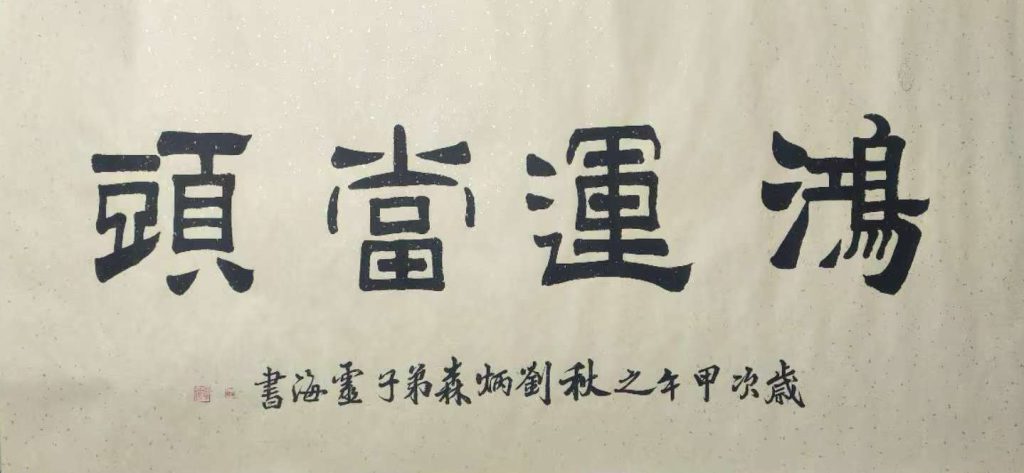 鴻運當頭
歲次甲午之秋劉炳森弟子靈海書